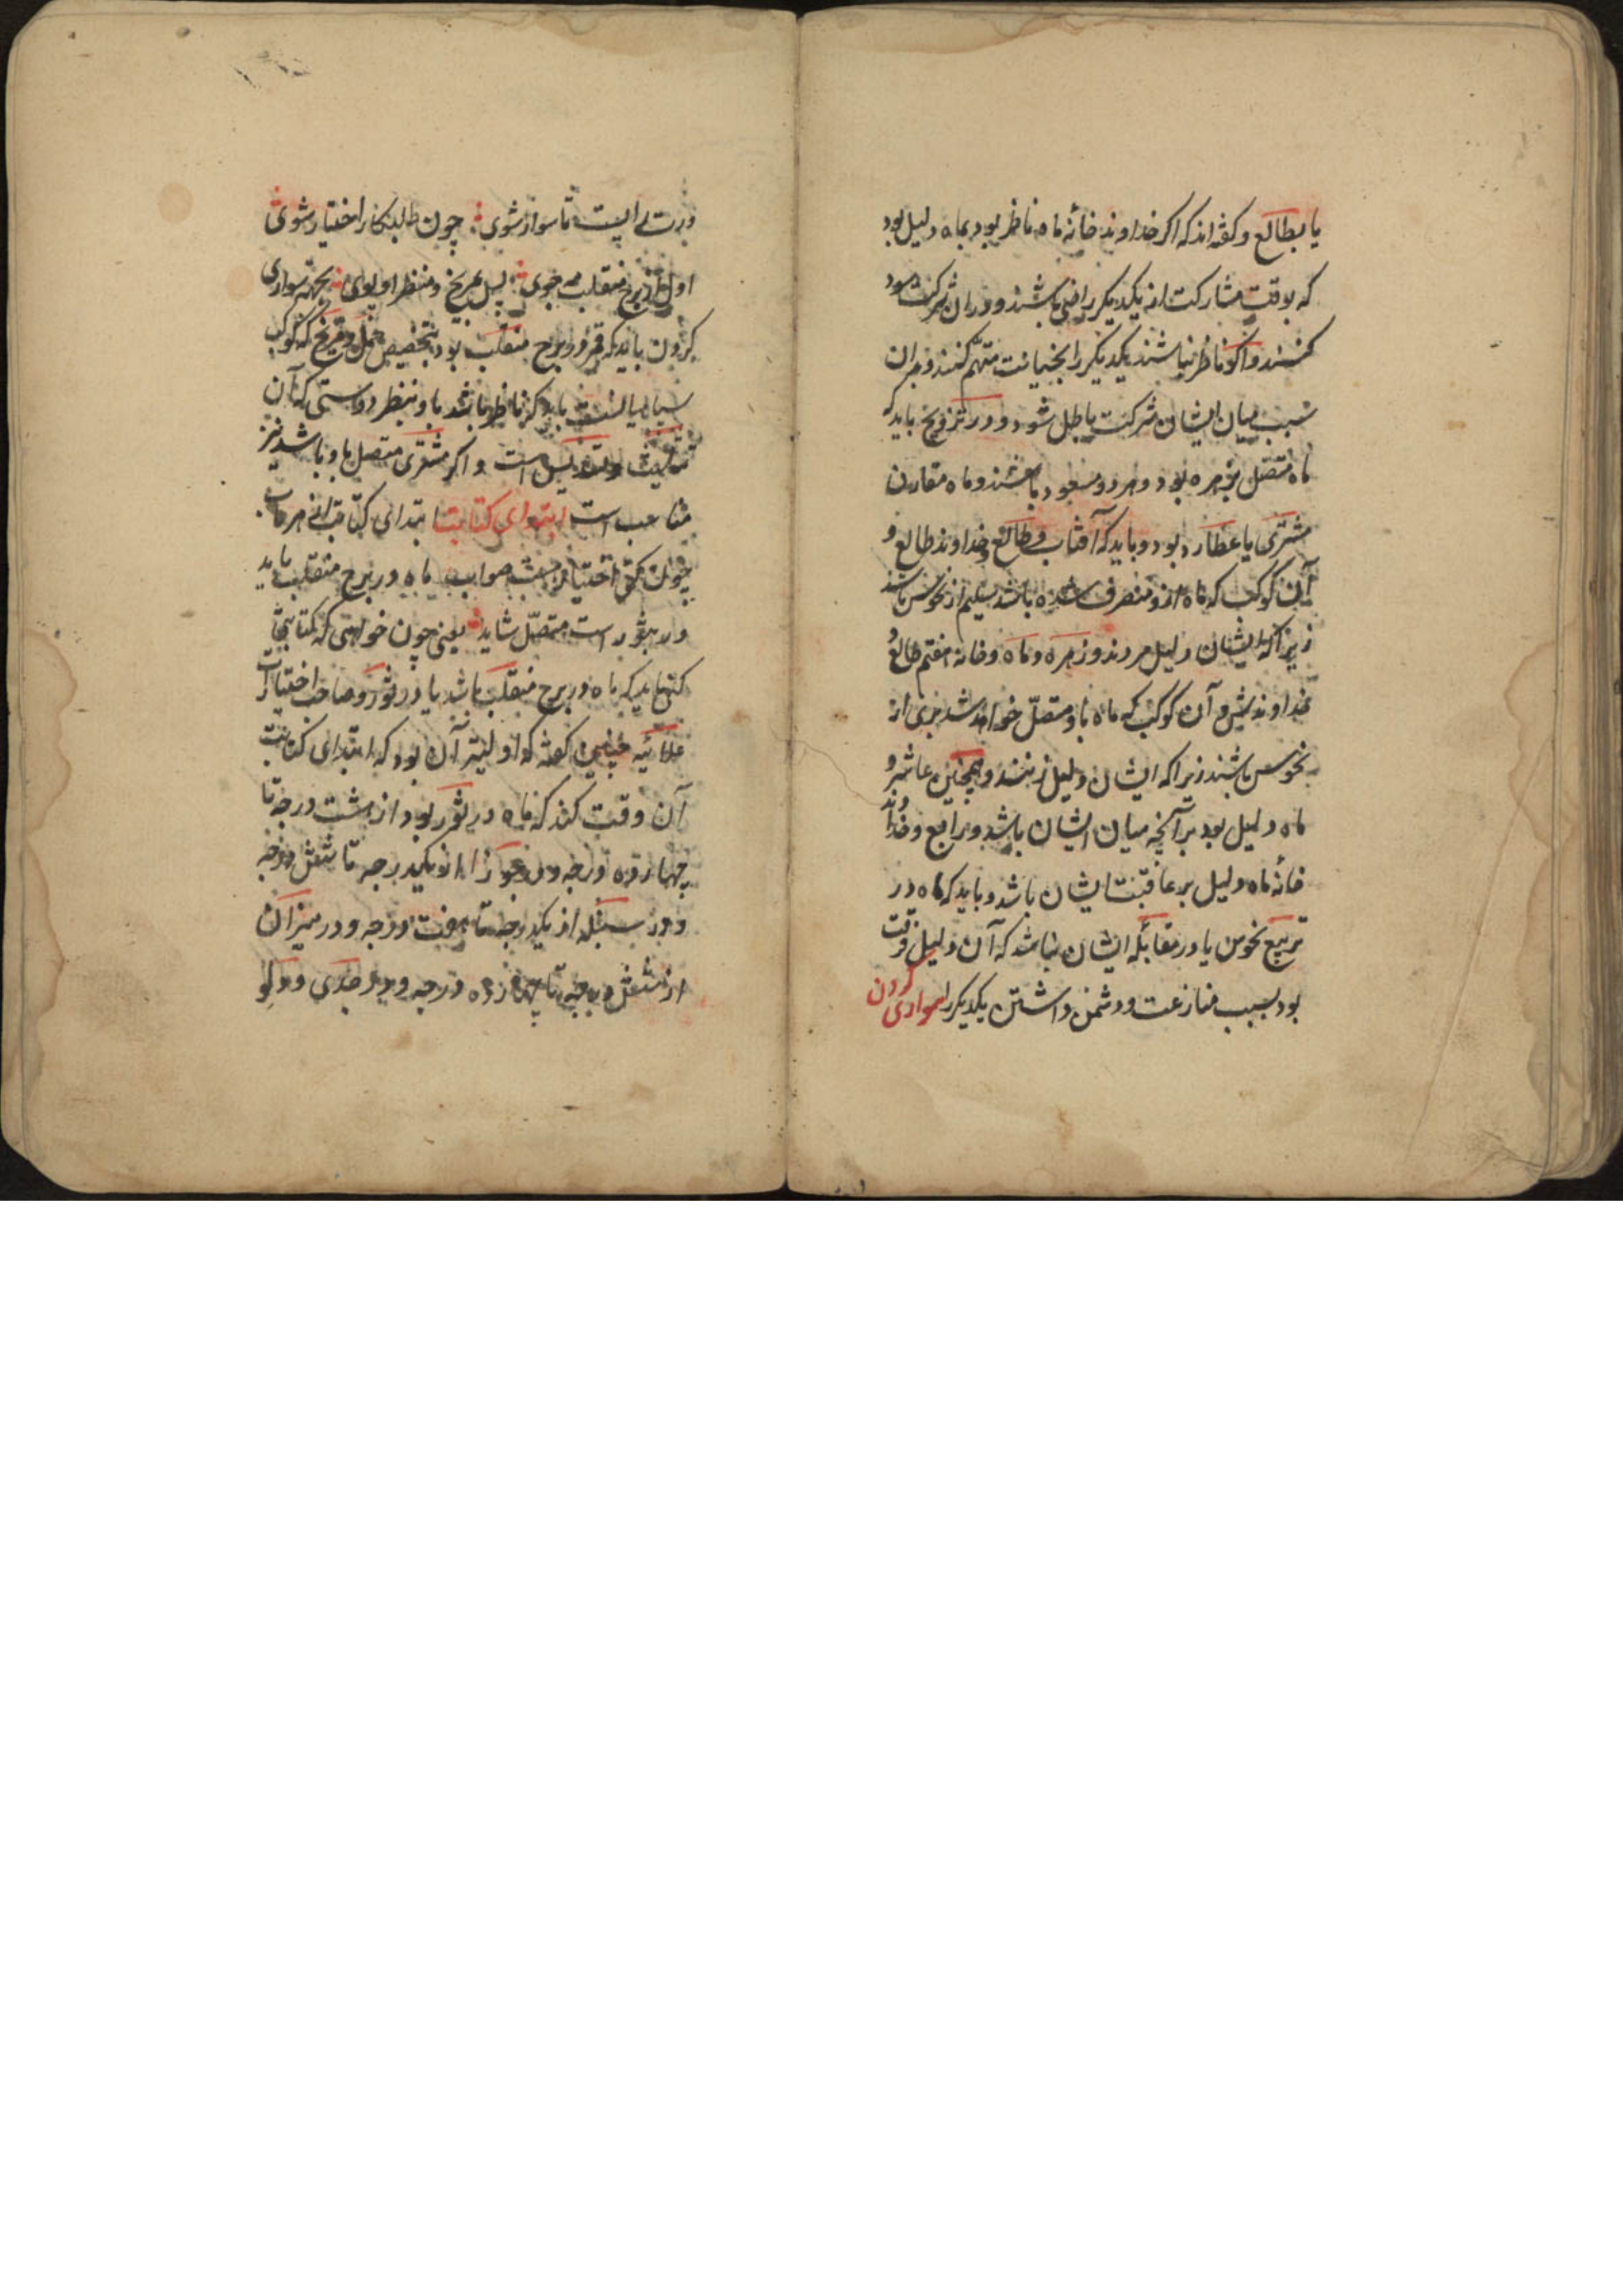 یا بطالع و کفته اند که اکر خداوند خانهٔ ماه ناظر بود بماه دلیل بود
که بوقت مشارکت از یکدیکر راضی باشند و در ان شرکت سود
کنند و اکر ناظر نباشند یکدیکر را بخیانت متهّم کنند و بدان
سبب میان ایشان شرکت باطل شود و در تزویج باید که
ماه متصل بزهره بود و هر دو مسعود باشند و ماه مقارن
مشتری یا عطارد بود و باید که آفتاب و طالع و خداوند طالع و
آن کوکب که ماه ازو منصرف شده باشد سلیم از نحوس باشند
زیرا که ایشان دلیل مردند و زهره و ماه و خانه هفتم طالع و
خداوندش و آن کوکب که ماه باو متصلّ خواهد شد بری از
نحوس باشند زیرا که ایشان دلیل زنند و همچنین عاشر و
ماه دلیل بود بر آنچه میان ایشان باشد و رابع و خداوند
خانهٔ ماه دلیل بر عاقبت ایشان باشد و باید که ماه در
تربیع نحوس یا در مقابلهٔ ایشان نباشد که آن دلیل فرقت
بود بسبب منازعت و دشمن داشتن یکدیکر را سواری کردن
تا سوار شوی چون طالبکار اختیار شوی
اول از برج منقلب مه جوی پس بمریخ و منظر او پوی بجهة سواری
کردن باید که قمر در برج منقلب بود بتخصیص حمل و مریخ که کوکب
باید که ناظر باشد باو بنظر دوستی که آن
تثلیث و تسدیس است و اکر مشتری متصل باو باشد نیز
مناسب است ابتدای کتابت ابتدای کتابت از هر باب
چون کنی اختیار هست صواب ماه در برج منقلب باید
ور بثور است متصّل شاید یعنی چون خواهی که کتابتی
کنی باید که ماه در برج منقلب باشد یا در ثور و صاحب اختیارات
علائیه چنین کفته که اولیتر آن بود که ابتدای کتابت
آن وقت کند که ماه در ثور بود از هشت درجه تا
چهارده درجه و در جوزا از یکدرجه تا شش درجه
و در سنبله از یکدرجه تا هفت درجه و در میزان
از شش درجه تا چهارده درجه و در جدی و دلو